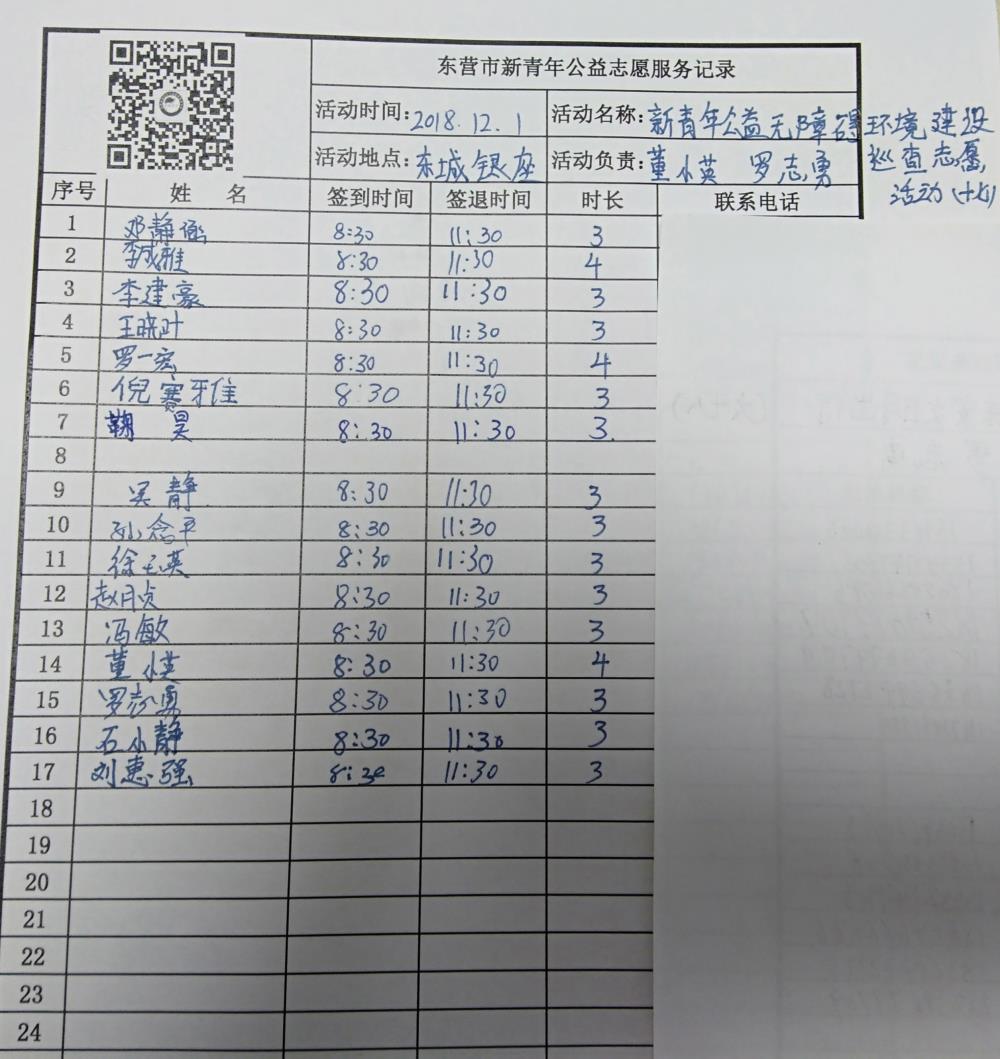 东营市新青年公益志愿服务记录
活动时间:2018.12.1 活动名称:新青年公益无障碍环境建设
巡查志愿
活动地点:东城银座 活动负责:董小英 罗志勇
活动(十七)
序号 姓 名 签到时间 签退时间 时长 联系电话
1 邓静涵 8:30 11:30 3
2 李成雅 8:30 11:30 4
3 李建豪 8:30 11:30 3
4 王晓叶 8:30 11:30 3
5 罗一宏 8:30 11:30 4
6 倪赛雅 8:30 11:30 3
7 鞠 昊 8:30 11:30 3.
8
9 吴静 8:30 11:30 3
10 孙念平 8:30 11:30 3
11 徐英 8:30 11:30 3
12 赵月贞 8:30 11:30 3
13 冯敏 8:30 11:30 3
14 董小英 8:30 11:30 4
15 罗志勇 8:30 11:30 3
16 石小静 8:30 11:30 3
17 刘惠强 8:30 11:30 3
18
19
20
21
22
23
24